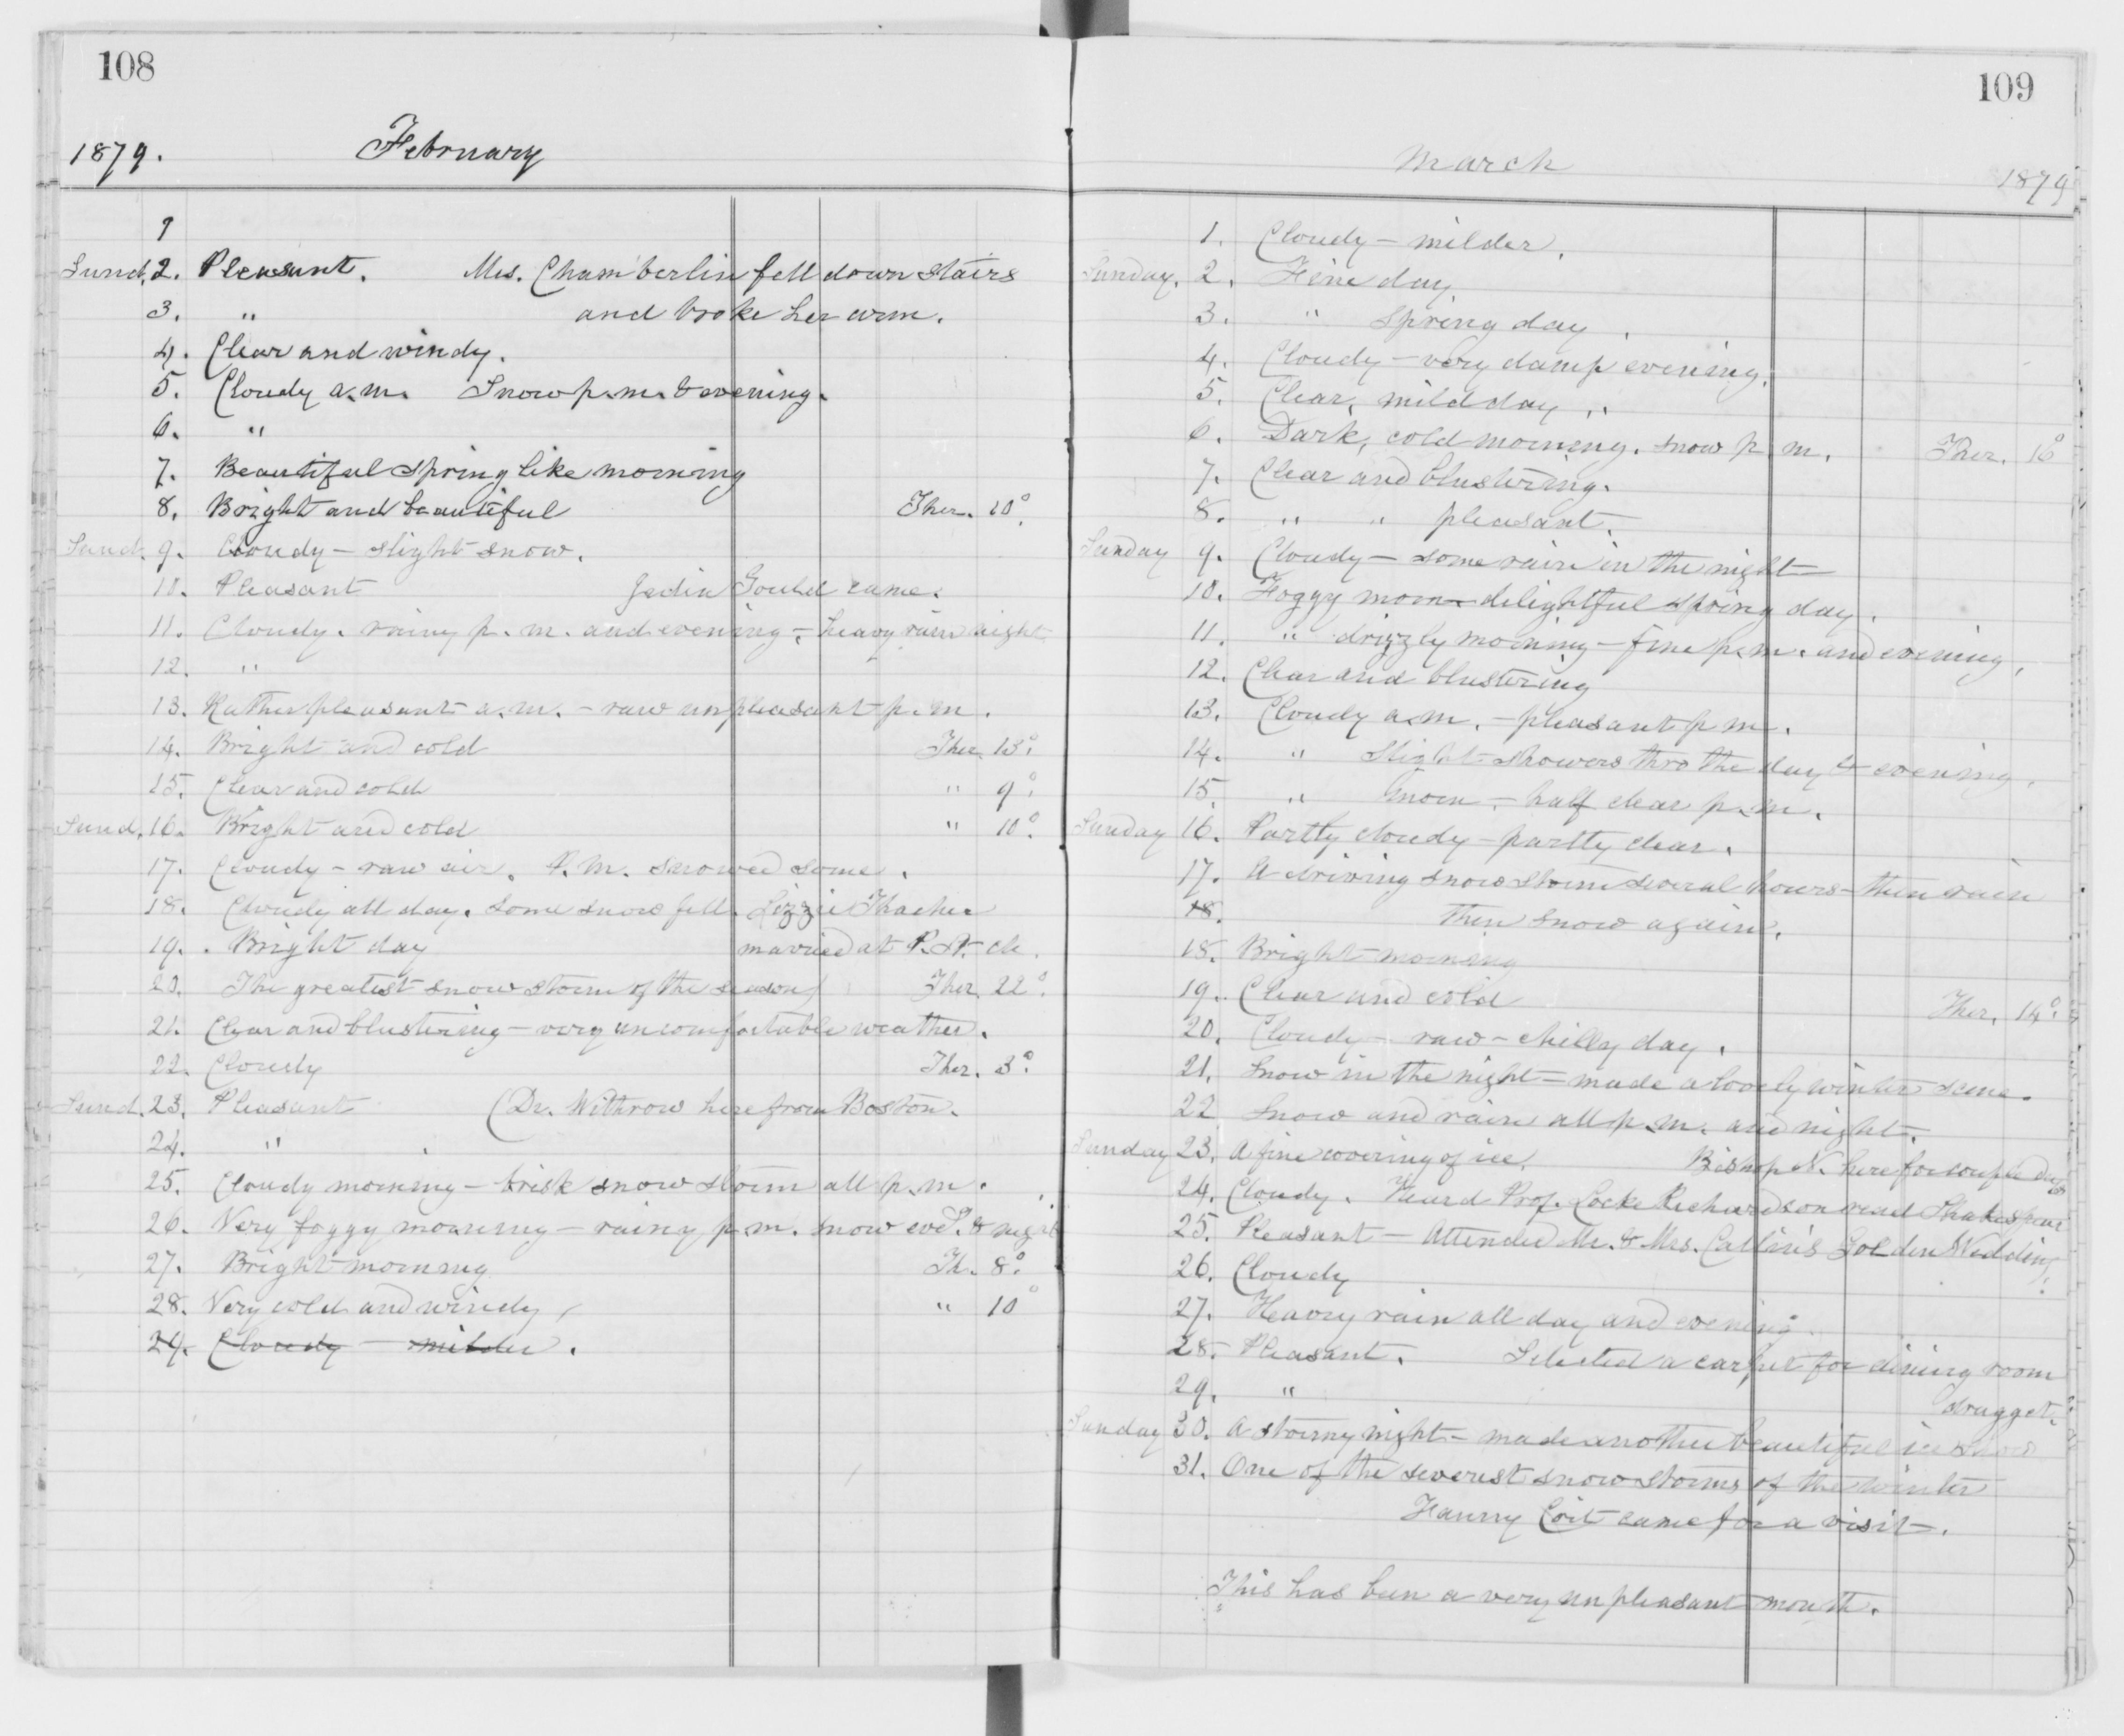 108
1879. February
1
Sund. 2. Pleasant. Mrs. Chamberlin fell down stairs
3. " and broke her arm.
4. Clear and windy.
5. Cloudy a.m. Snow p.m. & evening.
6. "
7. Beautiful Spring like morning
8. Bright and beautiful Ther. 10°.
Sund. 9. Cloudy - slight snow.
10. Pleasant Gould came.
11. Cloudy. rainy p.m. and evening - heavy rain night
12. "
13. Rather pleasant a.m. - raw unpleasant p.m.
14. Bright and cold Ther. 13°.
15. Clear and cold " 9°.
Sund. 16. Bright and cold " 10°.
17. Cloudy - raw air. P.M. snowed some.
18. Cloudy all day. some snow fell. Lizzie Thacher
19. Bright day married at P. ch.
20. The greatest snow storm of the season Ther. 22°.
21. Clear and blustering - very uncomfortable weather.
22. Cloudy Ther. 3°.
Sund. 23. Pleasant (Dr. Withrow here from Boston.
24. " .
25. Cloudy morning - brisk snow storm all p.m.
26. Very foggy morning - rainy p.m. snow eve. & night
27. Bright morning Th. 8°.
28. Very cold and windy, " 10°
29. Cloudy - milder.
109
March 1879
1. Cloudy - milder.
Sunday. 2. Fine day
3. " Spring day.
4. Cloudy - very damp evening.
5. Clear, mild day.
6. Dark, cold morning. snow p.m. Ther. 16°
7. Clear and blustering.
8. " " pleasant.
Sunday 9. Cloudy - some rain in the night
10. Foggy morn - delightful spring day.
11. " drizzly morning - fine p.m. and evening.
12. Clear and blustering
13. Cloudy a.m. - pleasant p.m.
14. " Slight showers thro the day & evening.
15. " morn - half clear p.m.
Sunday 16. Partly cloudy - partly clear.
17. A driving snow storm several hours - then rain
18. then snow again.
18. Bright morning
19. Clear and cold Ther. 14°.
20. Cloudy - raw - chilly day.
21. Snow in the night - made a lovely winter scene.
22 Snow and rain all p.m. and night.
Sunday 23. A fine covering of ice. Bishop N. here for couple days
24. Cloudy. Heard Prof. Locke Richardson read Shakespear
25. Pleasant - Attended Mr. & Mrs. Catlin's Golden Wedding.
26. Cloudy
27. Heavy rain all day and evening.
28. Pleasant. Selected a carpet for dining room
29. " drugget.
Sunday 30. A stormy night - made another beautiful ice show
31. One of the severest snow storms of the winter
Fanny Coit came for a visit.
This has been a very unpleasant month.